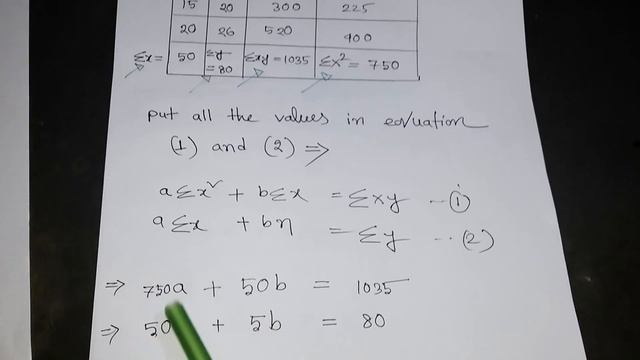 15 20 300 225
20 26 520 400
Σx = 50 Σy = 80 Σxy = 1035 Σx² = 750
put all the values in equation
(1) and (2) ⇒
aΣx² + bΣx = Σxy --- ①
aΣx + bn = Σy --- (2)
⇒ 750a + 50b = 1035
⇒ 50 + 5b = 80